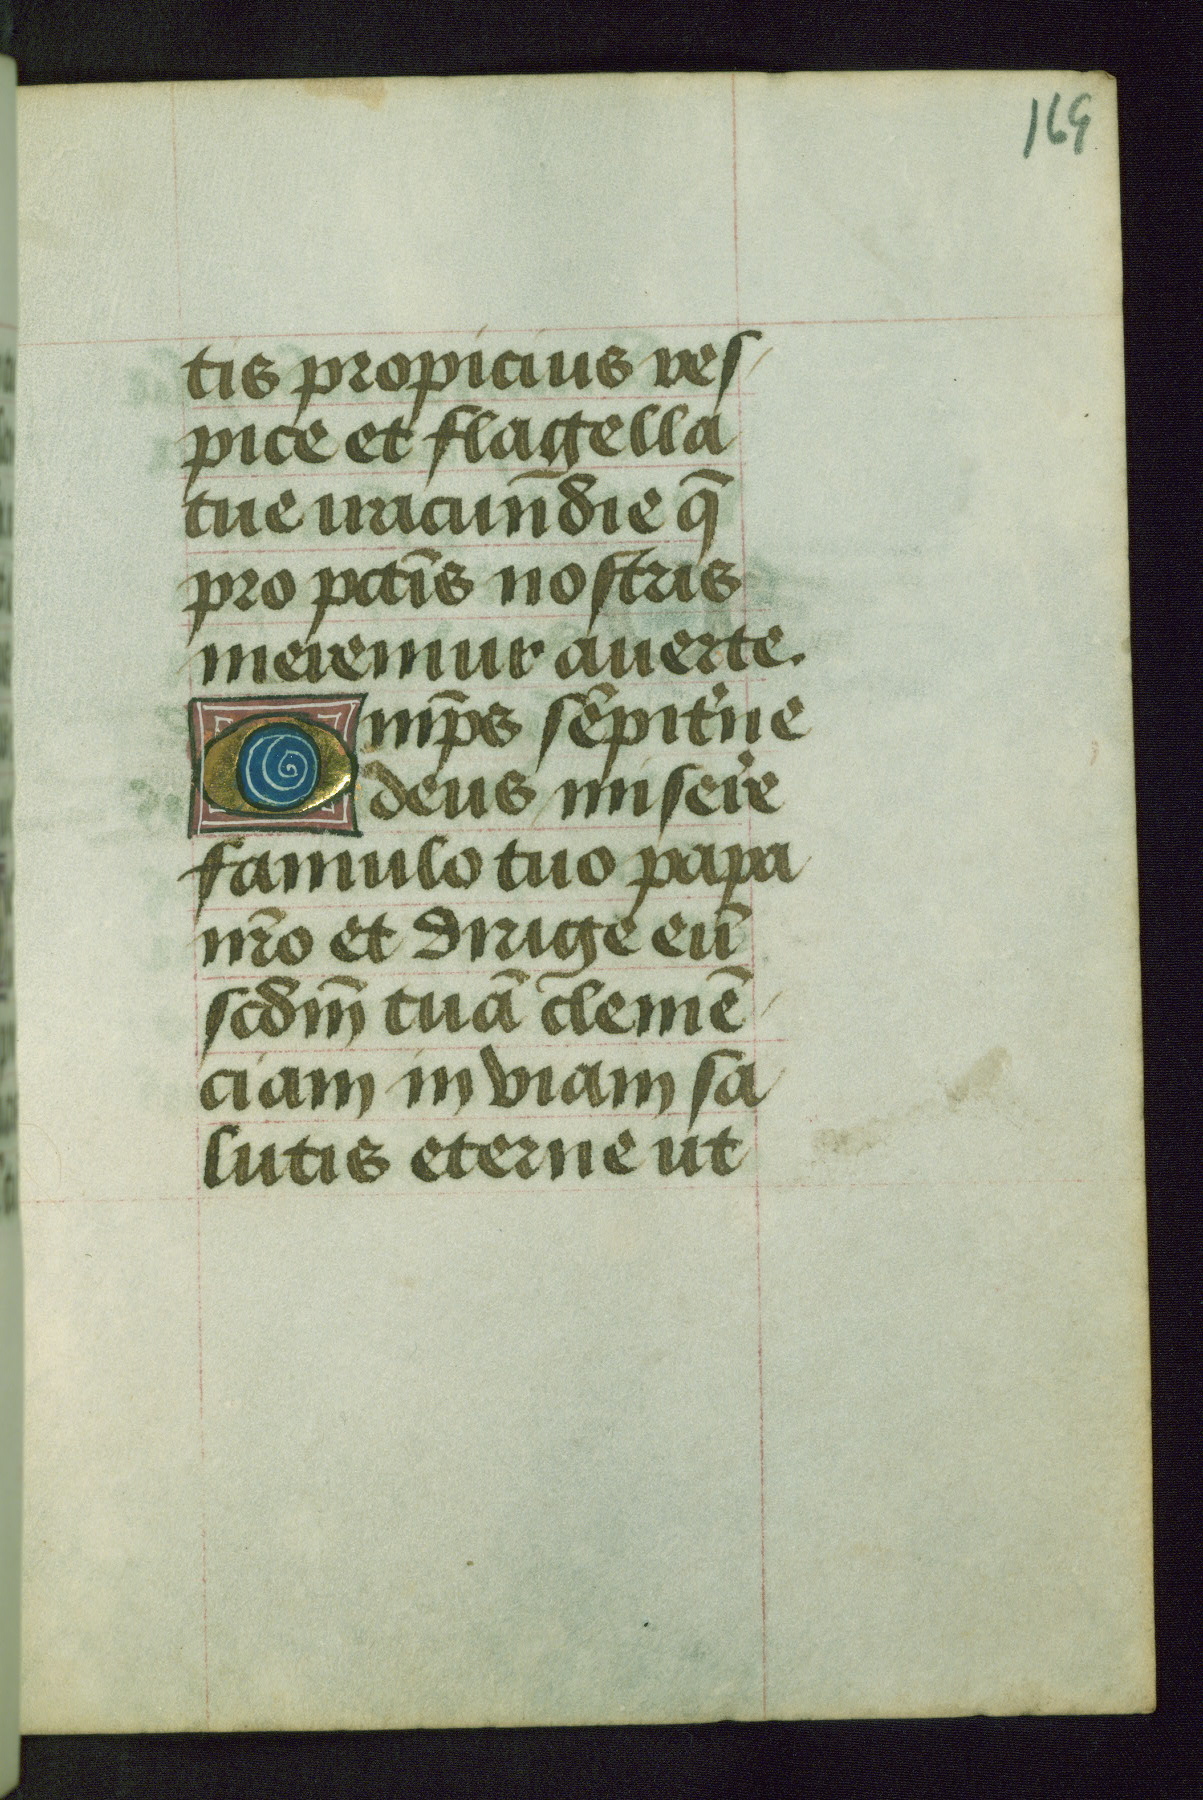 169
tis propicius res
pice et flagella
tue iracun̄die q̄
pro pctīs nostris
meremur auerte.
Omp̄s sēpit'ne
deus misere
famulo tuo papa
nr̄o et dirige eū
scdm̄ tuā clemē
ciam in viam sa
lutis eterne ut